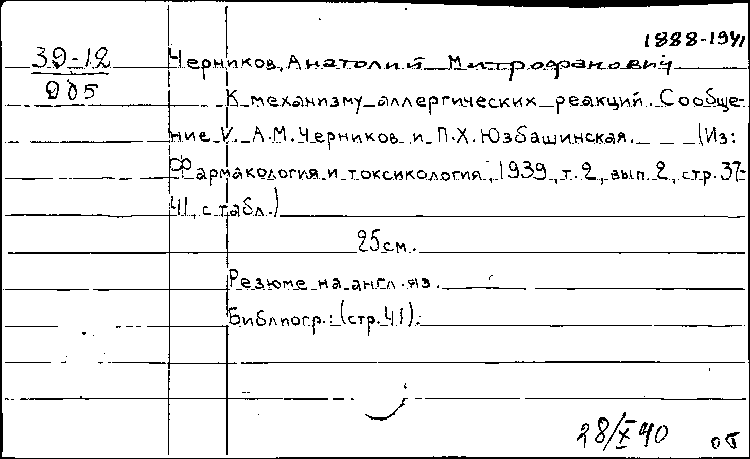 1888-1941
39-12
005
Черников, Анатолий Митрофанович
К механизму аллергических реакций. Сообще-
ние V. А.М. Черников и П.Х. Юзбашинская. (Из:
Фармакология и токсикология, 1939, т. 2, вып. 2, стр. 37-
41, с табл.)
25см.
Резюме на англ. яз.
Библиогр.: (стр. 41).
28/X 40 об